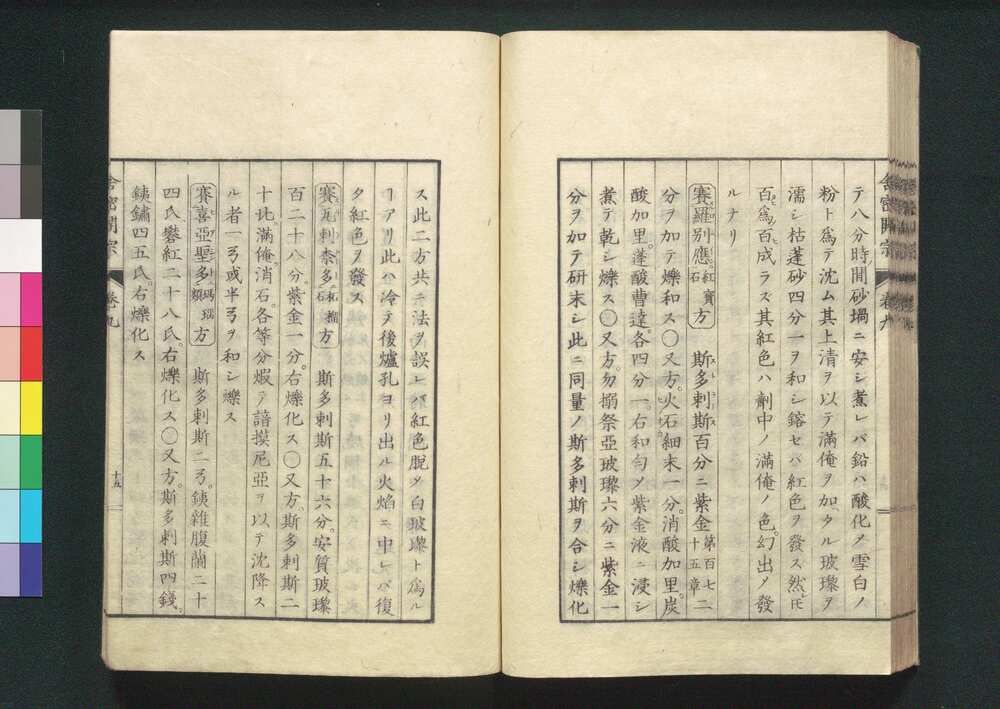 舎密開宗
巻九
テ八分時間砂堝ニ安シ煮レバ鉛ハ酸化メ雪白ノ
粉ト為テ沈ム其上清ヲ以テ満俺ヲ加タル玻瓈ヲ
濡シ枯蓬砂四分一ヲ和シ鎔セバ紅色ヲ發ス然𪜈
百為百成ラス其紅色ハ劑中ノ満俺ノ色幻出メ發
ルナリ
賽羅別應紅寶石方 斯多剌斯百分ニ紫金第百七十五章二
分ヲ加テ爍和ス〇又方。火石細末一分。消酸加里。炭
酸加里。蓬酸曹達。各四分一右和匀メ紫金液ニ浸シ
煮テ乾シ爍ス〇又方。勿搦祭亞玻瓈六分ニ紫金一
分ヲ加テ研末シ此ニ同量ノ斯多剌斯ヲ合シ爍化
ス此二方共ニ法ヲ誤レバ紅色脱メ白玻瓈ト為ル
ヿアリ此ハ冷テ後爐孔ヨリ出ル火焔ニ中レバ復
タ紅色ヲ發ス
賽瓦剌柰多柘榴石方 斯多剌斯五十六分。安質玻瓈
百二十八分。紫金一分。右爍化ス〇又方。斯多剌斯二
十氏。満俺消石。各等分煆テ諳摸尼亞ヲ以テ沈降ス
ル者一弖或半弖ヲ和シ爍ス
賽喜亞聖多瑪瑙類方 斯多剌斯二弖。銕雜腹蘭二十
四氏礬紅二十八氏。右爍化ス〇又方。斯多剌斯四錢。
銕鏽四五氏。右爍化ス
舎密開宗
巻九
十五